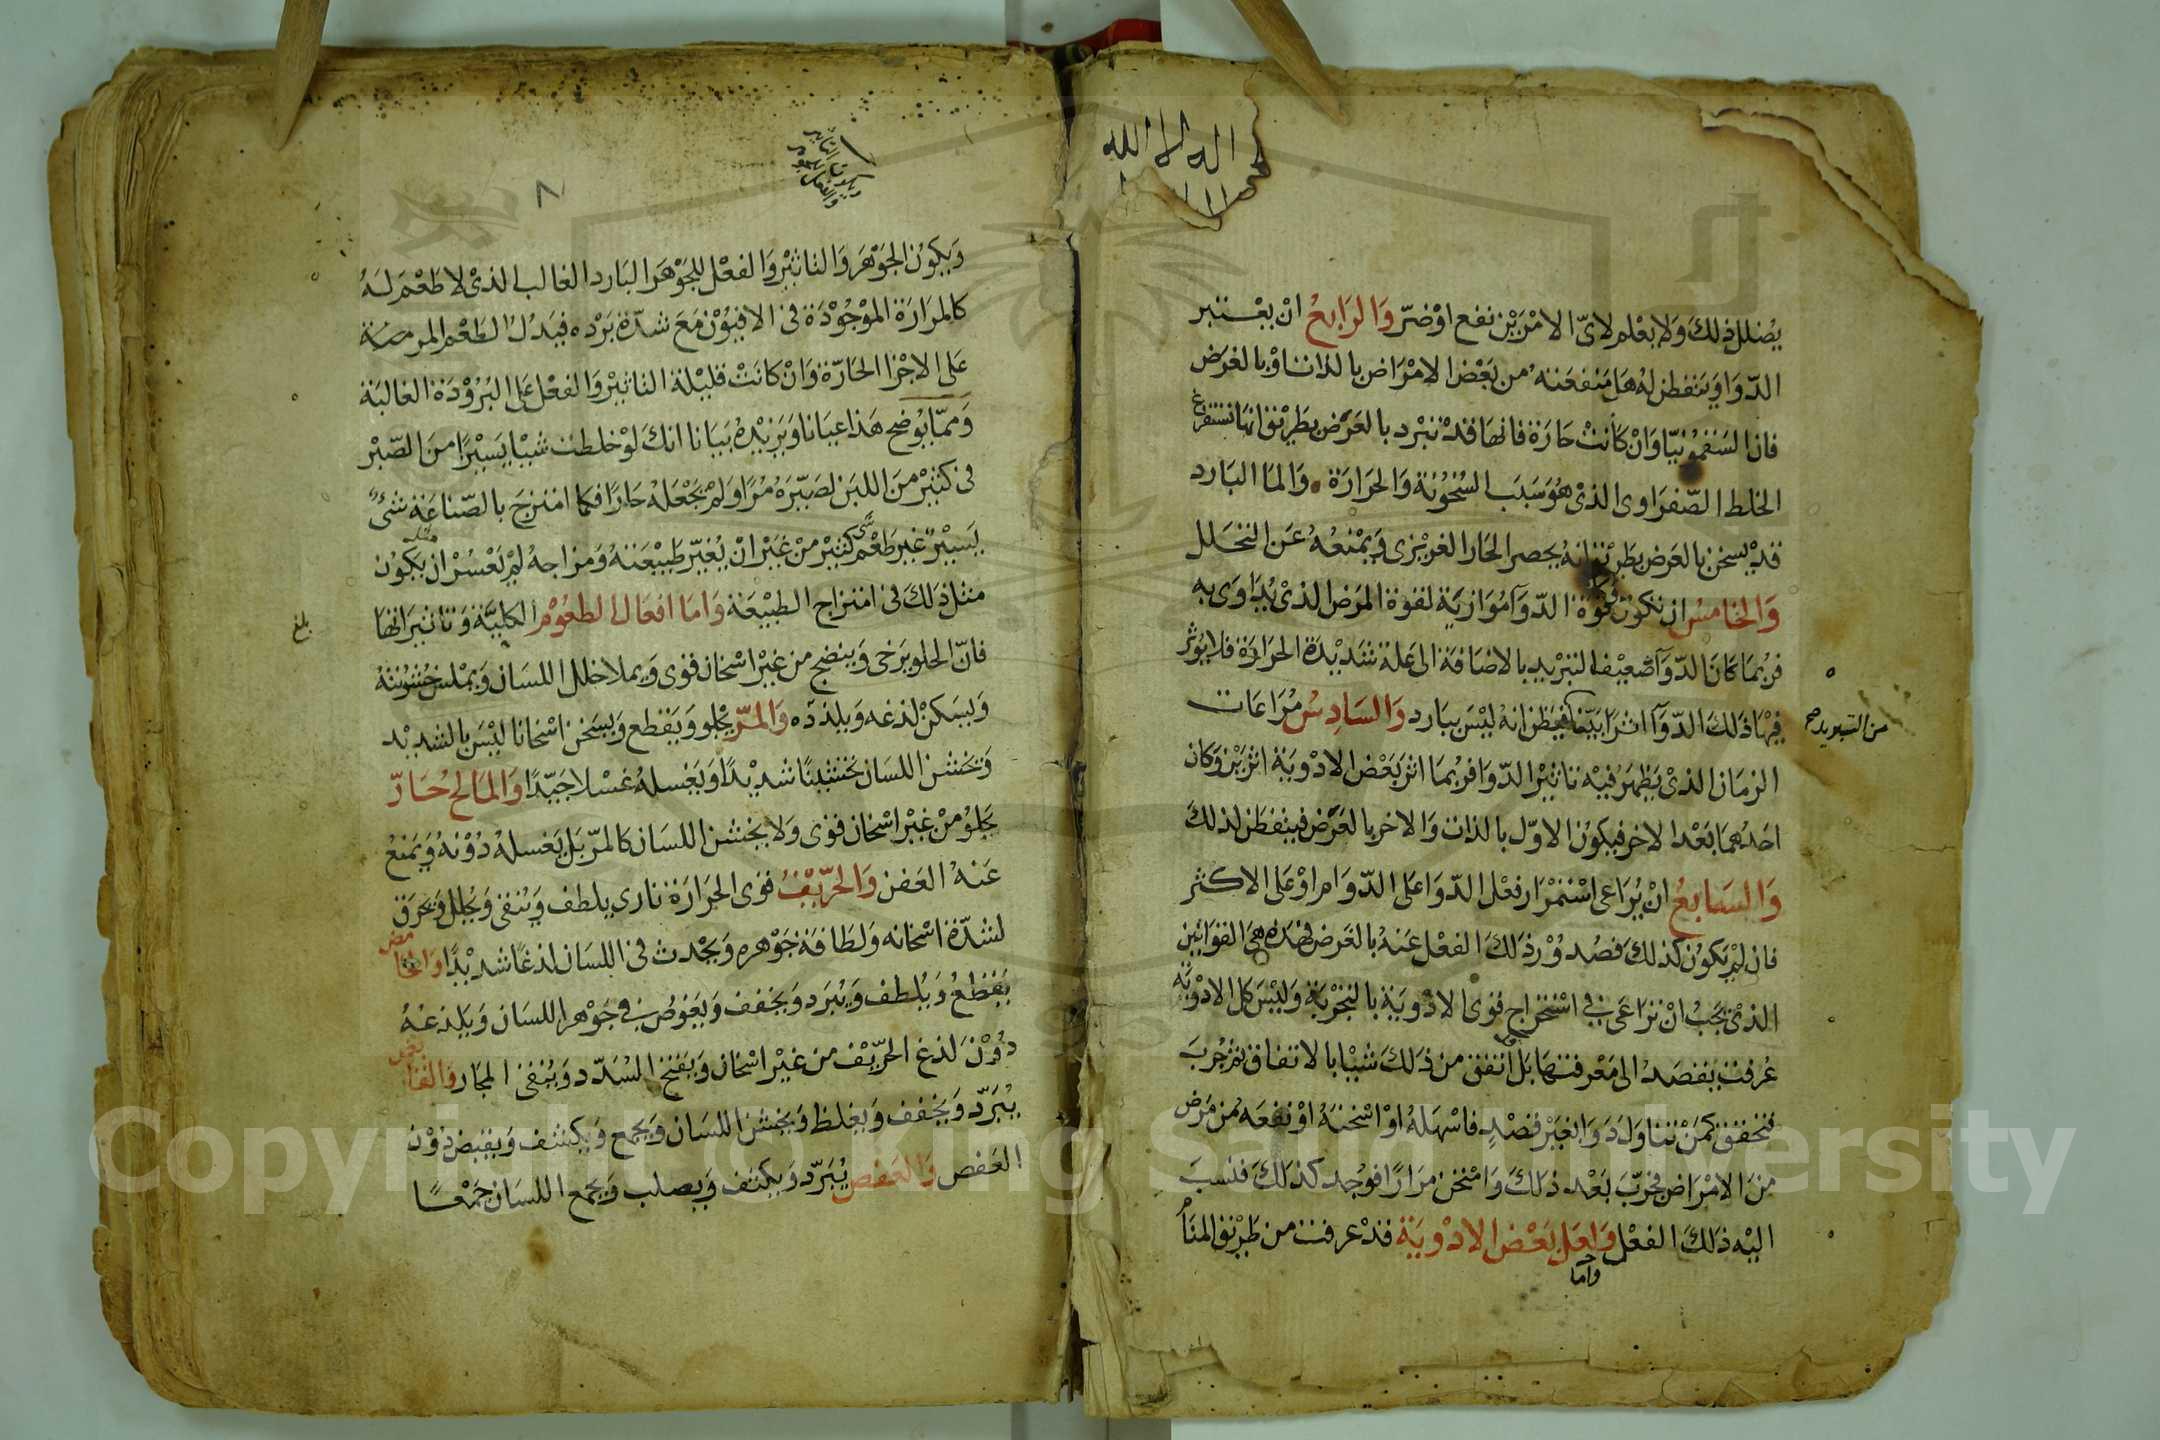 اله الا الله
يضلل ذلك ولا يعلم لاىّ الامرين نفع اوضرّ والرابع ان يعتبر
الدّواويتفطن له هل منفعته من بعض الامراض بالذات اوبالغرض
فان السقمونيّا وان كانت حارة فانها قد تبرد بالعرض بطريق انها تستفرغ
الخلط الصّفراوى الذى هو سبب السخونة والحرارة والما البارد
قد يسخن بالعرض بطريق انه يحصر الحار الغريزى ويمنعه عن التحلل
والخامس ان تكون قوة الدّوآ موازية لقوة المرض الذى يداوى به
فربما كان الدّوآ ضعيف التبريد بالاضافة الى علة شديدة الحرارة فلا يؤثر
فيها ذلك الدّوآ اثرا بيّنا فيظن انه ليس ببارد والسادس مراعات
من التبريد صح
الزمان الذى يظهر فيه تاثير الدّوا فربما اثر بعض الادوية اثرين وكان
احدهما بعد الاخر فيكون الاوّل بالذات والاخر بالعرض فيتفطن لذلك
والسابع ان يراعى استمرار فعل الدّوا على الدّوام او على الاكثر
فان لم يكون كذلك فصدور ذلك الفعل عنه بالعرض فهذه هى القوانين
الذى يجب ان تراعى فى استخراج قوى الادوية بالتجربة وليس كل الادوية
عرفت بقصد الى معرفتها بل اتفق من ذلك شيا بالاتفاق ثم جرب
فتحقق كمن تناول دوا بغير قصد فاسهله او اسخنه او نفعه من مرض
من الامراض فجرّب بعد ذلك وامتحن مرارا فوجد كذلك فنسب
اليه ذلك الفعل ولعل بعض الادوية قد عرفت من طريق المنام
واما
٨
ويكون الجوهر والتاثير والفعل للجوهر البارد الغالب الذى لا طعم له
كالمرارة الموجودة فى الافيون مع شدّة برده فيدل الطعم المر منه
على الاجزا الحارّة وان كانت قليلة التاثير والفعل على البرودة الغالبة
وممّا يوضح هذا عيانا ويزيده بيانا انك لو خلطت شيا يسيرا من الصّبر
فى كثير من اللبن لصيّره مرا ولم يجعله حارا فكما امتزج بالصّناعة شئ
يسير غير طعم شى كثير من غير ان يغيّر طبيعته ومزاجه لم يعسر ان يكون
مثل
مثل ذلك فى امتزاج الطبيعة واما افعال الطعوم الكليّة وتاثيراتها
بلغ
فانّ الحلو يرخى وينضج من غير اسخان قوى ويملا خلل اللسان ويملس خشونته
ويسكن لذعه ويلذذه والمرّ يجلو ويقطع ويسخن اسخانا ليس بالشديد
وتخشن اللسان تخشينا شديدا ويغسله غسلا جيّدا والمالح حارّ
يجلو من غير اسخان قوى ولا يخشن اللسان كالمرّ بل يغسله دونه ويمنع
عنه العفن والحرّيف قوى الحرارة نارى يلطف وينقى ويحلل ويحرق
لشدّة اسخانه ولطافة جوهره ويحدث فى اللسان لذعا شديدا والحامض
يقطع ويلطف ويبرد ويجفف ويغوص فى جوهر اللسان ويلذعه
دون لذع الحرّيف من غير اسخان ويفتح السّدد وينقى المجار والقابض
يبرّد ويجفف ويغلظ ويخشن اللسان ويجمع ويكشف ويقبض دون
العفص والعفص يبرّد ويكثف ويصلب ويجمع اللسان جمعا